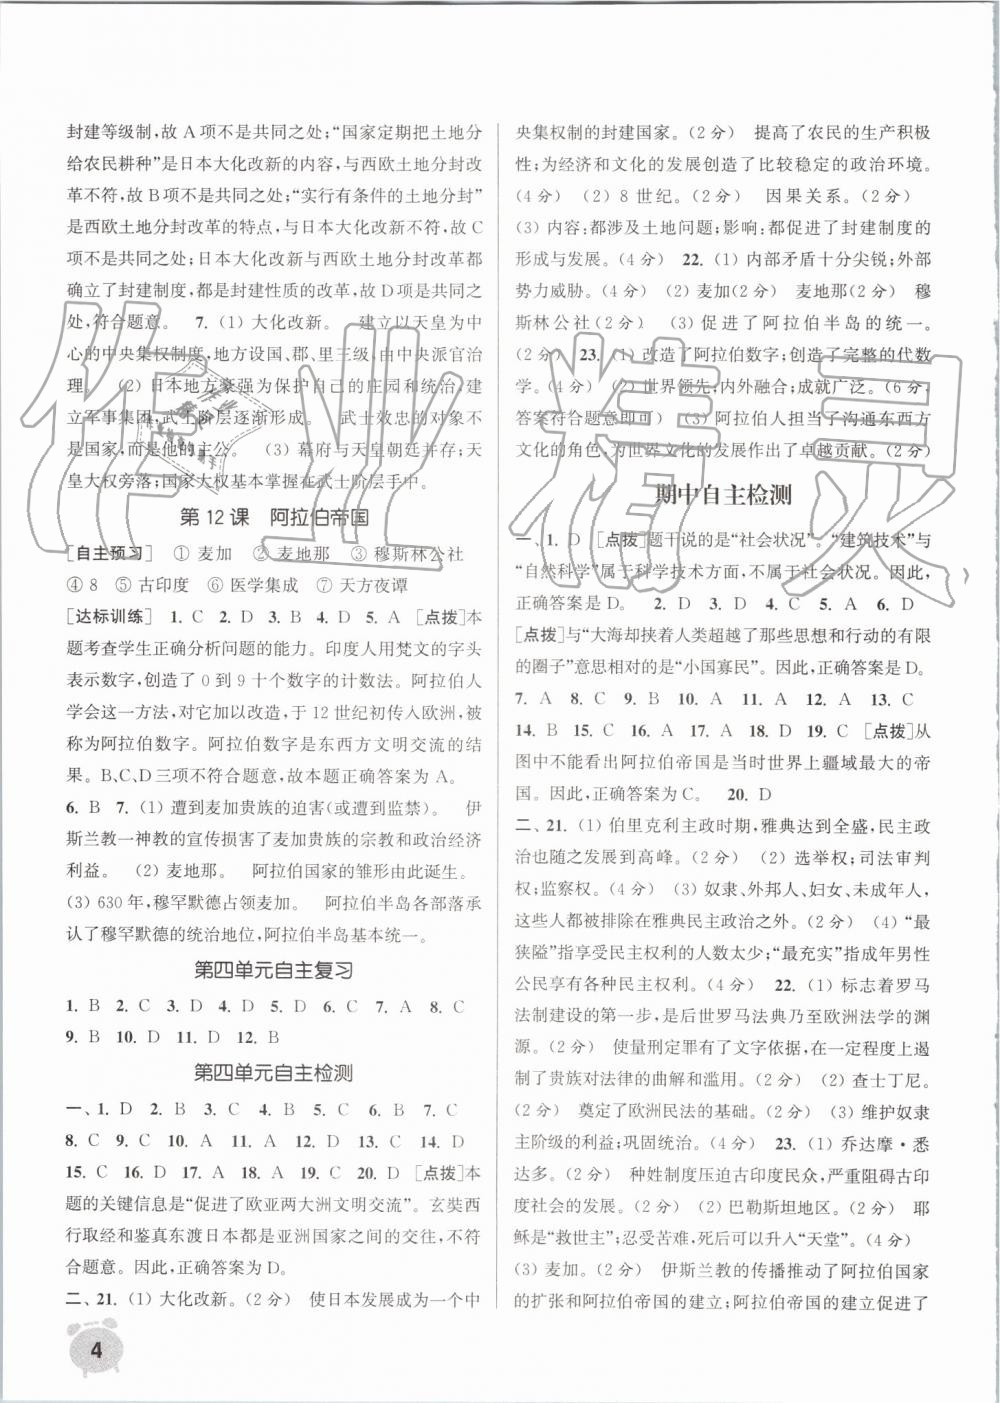 封建等级制,故 A 项不是共同之处;“国家定期把土地分
给农民耕种”是日本大化改新的内容,与西欧土地分封改
革不符,故 B 项不是共同之处;“实行有条件的土地分封”
是西欧土地分封改革的特点,与日本大化改新不符,故 C
项不是共同之处;日本大化改新与西欧土地分封改革都
确立了封建制度,都是封建性质的改革,故 D 项是共同之
处,符合题意。 7. (1) 大化改新。 建立以天皇为中
心的中央集权制度,地方设国、郡、里三级,由中央派官治
理。 (2) 日本地方豪强为保护自己的庄园和统治,建
立军事集团,武士阶层逐渐形成。 武士效忠的对象不
是国家,而是他的主公。 (3) 幕府与天皇朝廷并存;天
皇大权旁落;国家大权基本掌握在武士阶层手中。
第 12 课 阿拉伯帝国
[自主预习] ① 麦加 ② 麦地那 ③ 穆斯林公社
④ 8 ⑤ 古印度 ⑥ 医学集成 ⑦ 天方夜谭
[达标训练] 1. C 2. D 3. B 4. D 5. A [点拨]本
题考查学生正确分析问题的能力。印度人用梵文的字头
表示数字,创造了 0 到 9 十个数字的计数法。阿拉伯人
学会这一方法,对它加以改造,于 12 世纪初传入欧洲,被
称为阿拉伯数字。阿拉伯数字是东西方文明交流的结
果。B、C、D 三项不符合题意,故本题正确答案为 A。
6. B 7. (1) 遭到麦加贵族的迫害(或遭到监禁)。 伊
斯兰教一神教的宣传损害了麦加贵族的宗教和政治经济
利益。 (2) 麦地那。 阿拉伯国家的雏形由此诞生。
(3) 630 年,穆罕默德占领麦加。 阿拉伯半岛各部落承
认了穆罕默德的统治地位,阿拉伯半岛基本统一。
第四单元自主复习
1. B 2. C 3. D 4. D 5. D 6. C 7. A 8. C
9. B 10. D 11. D 12. B
第四单元自主检测
一、1. D 2. B 3. C 4. B 5. B 6. B 7. C
8. C 9. C 10. A 11. A 12. D 13. C 14. D
15. C 16. D 17. A 18. A 19. C 20. D [点拨]本
题的关键信息是“促进了欧亚两大洲文明交流”。玄奘西
行取经和鉴真东渡日本都是亚洲国家之间的交往,不符
合题意。因此,正确答案是 D。
二、21. (1) 大化改新。(2 分) 使日本发展成为一个中
央集权制的封建国家。(2 分) 提高了农民的生产积极
性;为经济和文化的发展创造了比较稳定的政治环境。
(4 分) (2) 8 世纪。(2 分) 因果关系。(2 分)
(3) 内容:都涉及土地问题;影响:都促进了封建制度的
形成与发展。(4 分) 22. (1) 内部矛盾十分尖锐;外部
势力威胁。(4 分) (2) 麦加(2 分) 麦地那(2 分) 穆
斯林公社(2 分) (3) 促进了阿拉伯半岛的统一。
(2 分) 23. (1) 改造了阿拉伯数字;创造了完整的代数
学。(4 分) (2) 世界领先;内外融合;成就广泛。(6 分,
答案符合题意即可) (3) 阿拉伯人担当了沟通东西方
文化的角色,为世界文化的发展作出了卓越贡献。(2 分)
期中自主检测
一、1. D [点拨]题干说的是“社会状况”。“建筑技术”与
“自然科学”属于科学技术方面,不属于社会状况。因此,
正确答案是 D。 2. D 3. D 4. C 5. A 6. D
[点拨]与“大海却挟着人类超越了那些思想和行动的有限
的圈子”意思相对的是“小国寡民”。因此,正确答案是 D。
7. A 8. C 9. B 10. A 11. A 12. A 13. C
14. B 15. C 16. C 17. A 18. D 19. C [点拨]从
图中不能看出阿拉伯帝国是当时世界上疆域最大的帝
国。因此,正确答案为 C。 20. D
二、21. (1) 伯里克利主政时期,雅典达到全盛,民主政
治也随之发展到高峰。(2 分) (2) 选举权;司法审判
权;监察权。(4 分) (3) 奴隶、外邦人、妇女、未成年人,
这些人都被排除在雅典民主政治之外。(2 分) (4) “最
狭隘”指享受民主权利的人数太少;“最充实”指成年男性
公民享有各种民主权利。(4 分) 22. (1) 标志着罗马
法制建设的第一步,是后世罗马法典乃至欧洲法学的渊
源。(2 分) 使量刑定罪有了文字依据,在一定程度上遏
制了贵族对法律的曲解和滥用。(2 分) (2) 查士丁尼。
(2 分) 奠定了欧洲民法的基础。(2 分) (3) 维护奴隶
主阶级的利益;巩固统治。(4 分) 23. (1) 乔达摩·悉
达多。(2 分) 种姓制度压迫古印度民众,严重阻碍古印
度社会的发展。(2 分) (2) 巴勒斯坦地区。(2 分) 耶
稣是“救世主”;忍受苦难,死后可以升入“天堂”。(4 分)
(3) 麦加。(2 分) 伊斯兰教的传播推动了阿拉伯国家
的扩张和阿拉伯帝国的建立;阿拉伯帝国的建立促进了
4
作业精灵